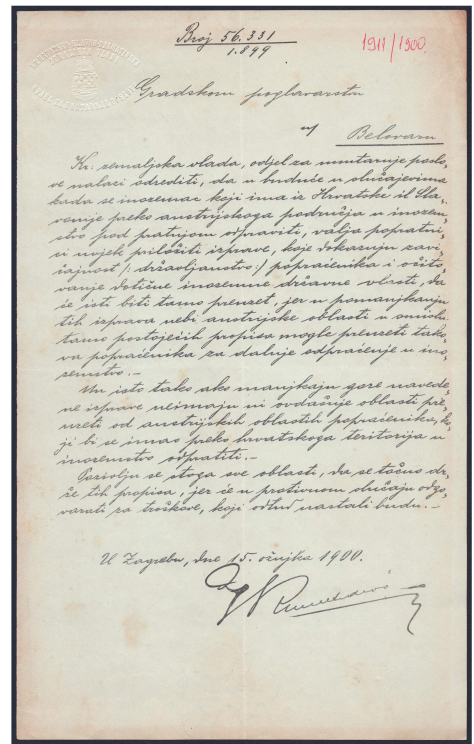 Broj 56.331
1.899
1911/1900.
Gradskom poglavarstvu
u
Belovaru
Kr. zemaljska vlada, odjel za unutarnje poslo-
ve nalazi odrediti, da u buduće u slučajevima
kada se inozemac koji ima iz Hrvatske il Sla-
vonije preko austrijskoga područja u inozem-
stvo pod pratnjom odpraviti, valja popratni-
ci uvjek priložiti izprave, koje dokazuju zavi-
čajnost /: državljanstvo :/ popraćenika i očito-
vanje dotične inozemne državne vlasti, da
će isti biti tamo preuzet, jer u pomanjkanju
tih izprava nebi austrijske oblasti u smislu
tamo postojećih propisa mogle preuzeti tako-
va popraćenika za daljnje odpraćenje u ino-
zemstvo.-
Un isto tako ako manjkaju gore navede-
ne izprave neimaju ni ovdašnje oblasti pre-
uzeti od austrijskih oblastih popraćenika, ko-
ji bi se imao preko hrvatskoga teritorija u
inozemstvo odpratiti.-
Pozivlju se stoga sve oblasti, da se točno dr-
že tih propisa, jer će u protivnom slučaju odgo-
varati za troškove, koji odtud nastali budu.-
U Zagrebu, dne 15. ožujka 1900.